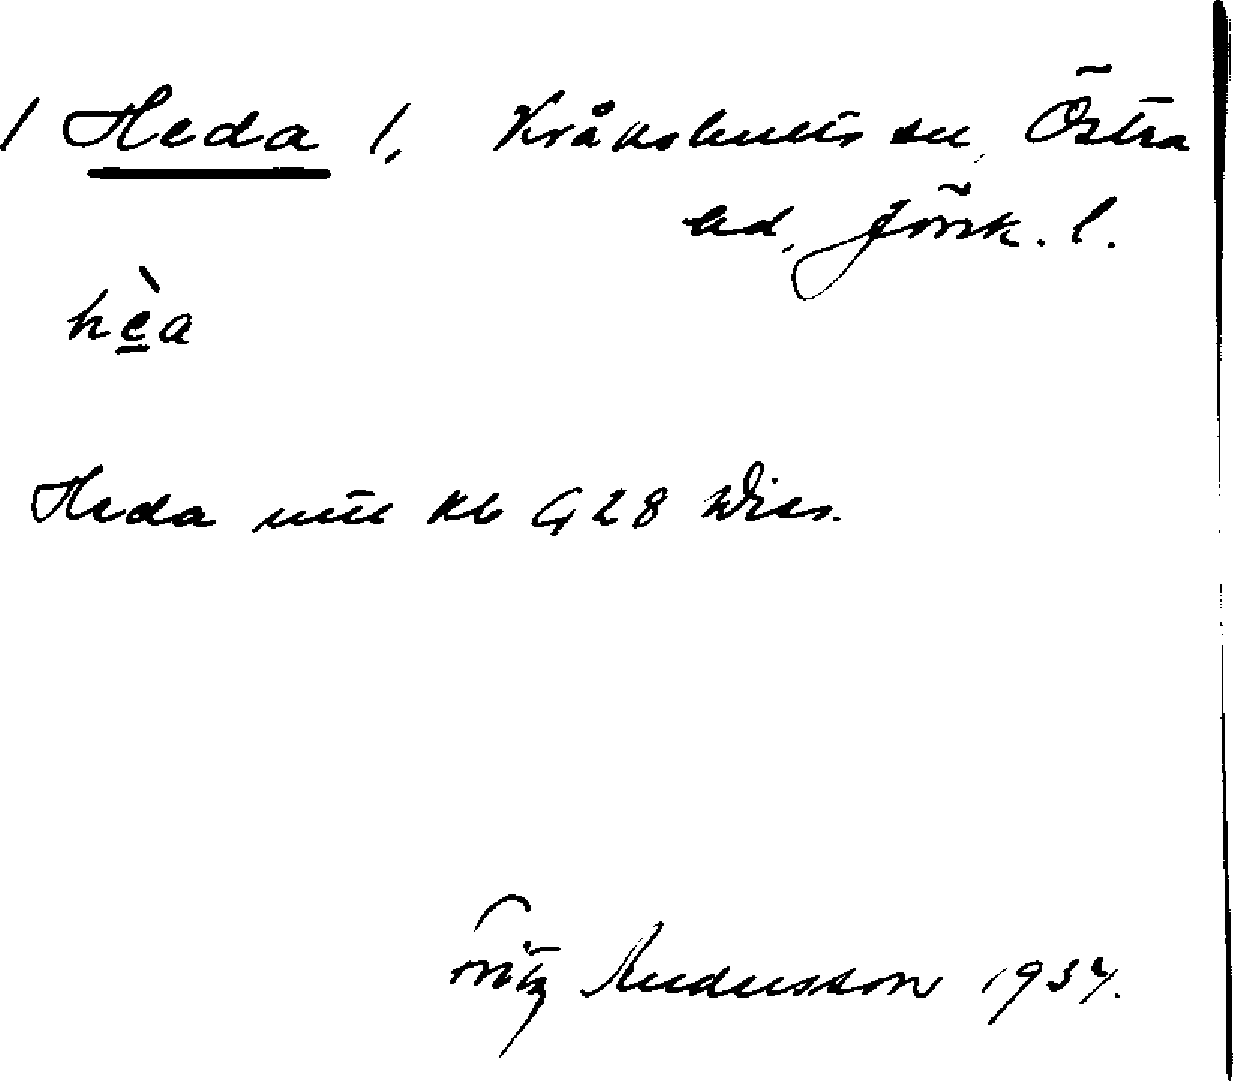 / Heda /, Kråkshults sn, Östra
hd, Jönk. l.
hèa
Heda mtl Kb G 28 Wies.
Fritz Andersson 1934.